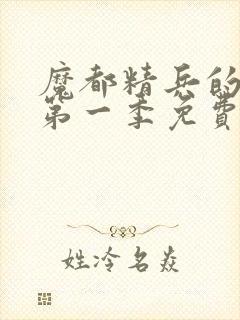 魔都精兵的
第一季免費
姓冷名焱